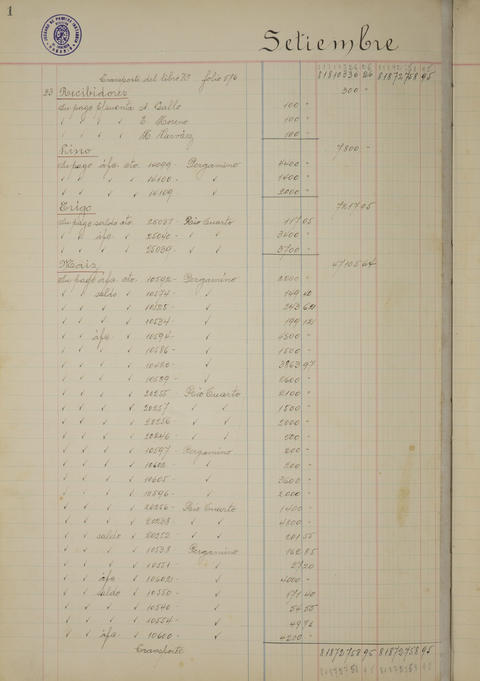 1
Setiembre
Transporte del libro 73 folio 576 81810330 26 81872758 95
23 Recibidores 300 -
Su pago c/cuenta A. Gallo 100 -
" " " " E. Moreno 100 -
" " " " M. Narváez 100 -
Lino 7800 -
Su pago áfa. cto. 14099 - Pergamino 4400 -
" " " " 14100 - " 1400 -
" " " " 14109 " 2000 -
Trigo 7217 05
Su pago saldo cto. 25037 - Rio Cuarto 117 05
" " áfa. " 25040 - " " 3400 -
" " " " 25039 - " " 3700 -
Maiz 47105 64
Su pago áfa. cto. 10592 - Pergamino
" " saldo " 10574 - " 149
" " " " " 243
" " " " 10534 - " 199
" " áfa. " 10594 - " 4800 -
" " " " 10586 - " 1500 -
" " " " " 3863 97
" " " " " 2600 -
" " " " 20255 - Rio Cuarto 2100 -
" " " " 20257 " " 1500 -
" " " " 20256 " " 2000 -
" " " " 20246 - " "
" " " " 10597 - Pergamino 200 -
" " " " 10602 - " 200 -
" " " " 10605 - " 3600 -
" " " " 10596 - " 2000 -
" " " " 20256 - Rio Cuarto 1400 -
" " " " 20238 " " 4800 -
" " saldo " 20252 " " 201 55
" " " " 10538 Pergamino 162 85
" " " " 10551 - " 20
" " áfa. " " 4000 -
" " saldo " 10550 - " 171 40
" " " " 10540 - " 54 55
" " " " 10554 - " 49
" " áfa. " 10600 - " 4200 -
Transporte 81872758 95 81872758 95